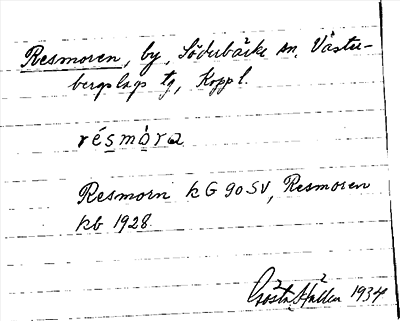 Resmoren, by, Söderbärke sn. Väster-
bergslags tg, Koppl.
résmòra
Resmorn KG 90 SV, Resmoren
kb 1928.
Gösta Hallen 1934